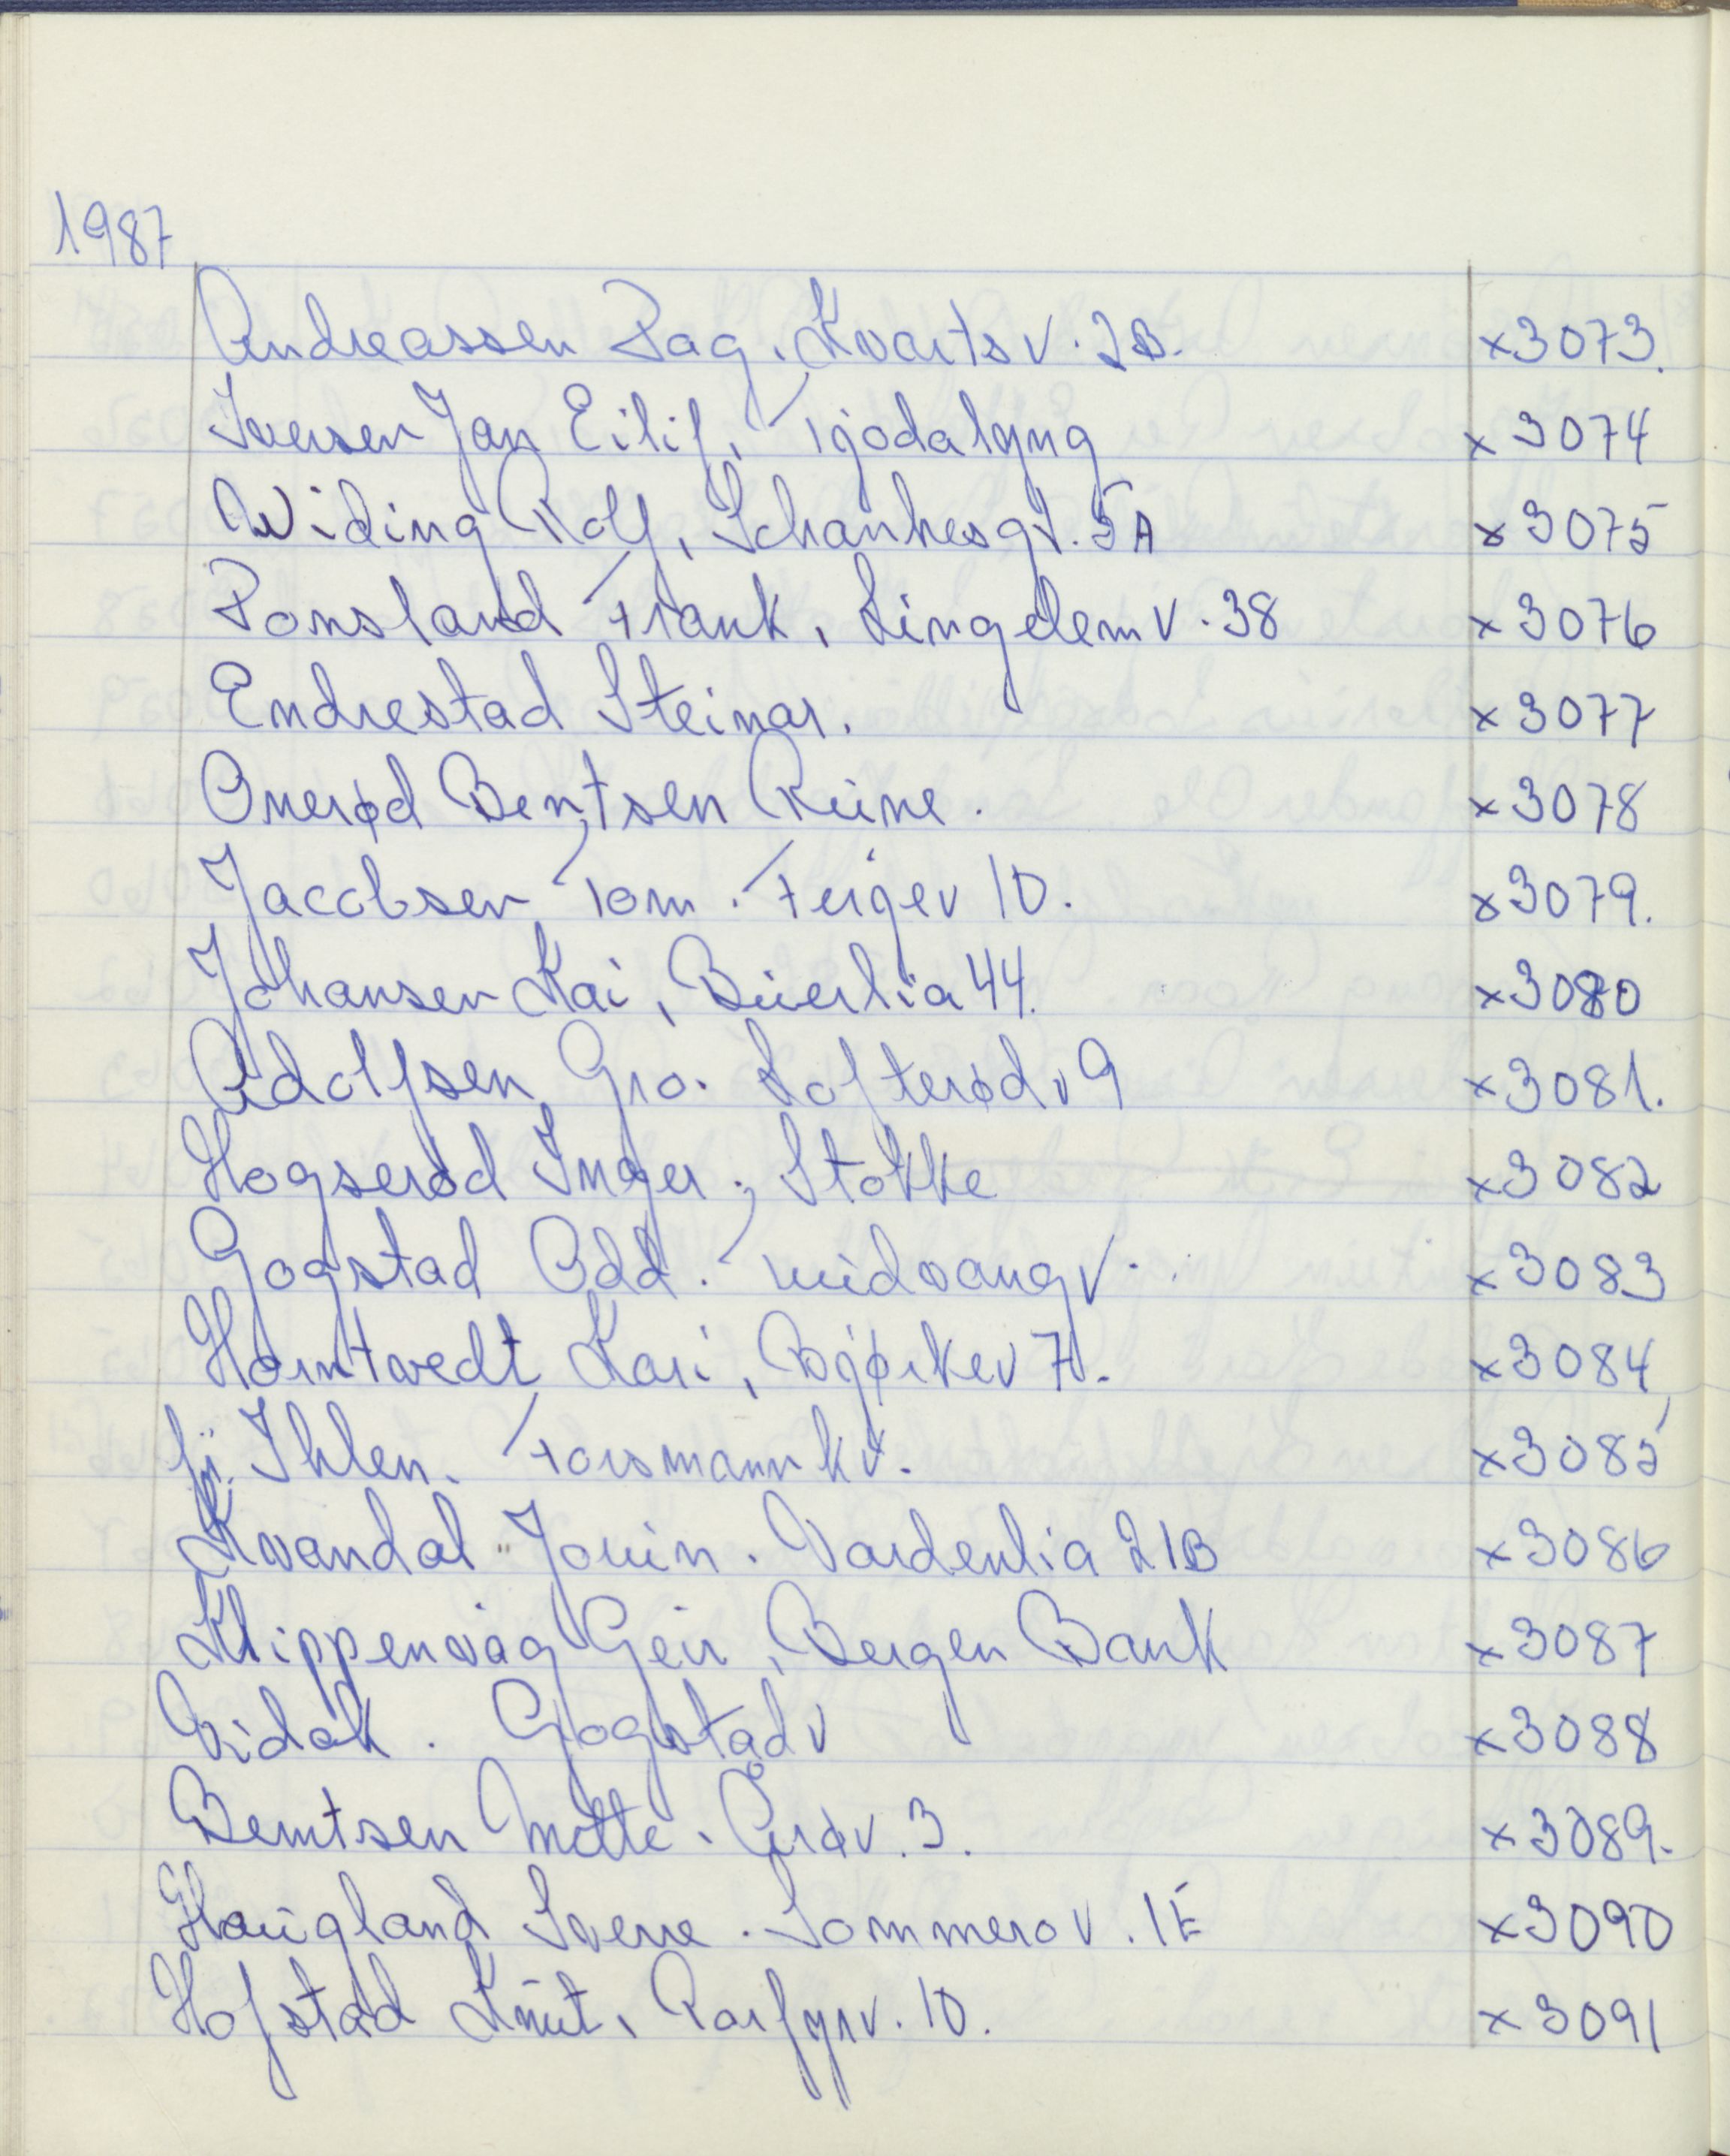 1987
Andreassen Dag. Kvartsv. 2B. x3073.
Iversen Jan Eilif, Tjodalyng x3074
Widing Rolf, Schanhesgt. 5A x3075
Ponsland Frank, Lingelemv. 38 x3076
Endrestad Steinar. x3077
Omerød Berntsen Rune. x3078
Jacobsen Tom. Fergev 10. x3079.
Johansen Kai, Buerlia 44. x3080
Adolfsen Gro. Lofterødv 9 x3081.
Hogserød Inger, Stokke x3082
Gogstad Odd. Midvangv. x3083
Horntvedt Kari, Bjørkev 7. x3084
fr. Ihlen. Forsmannkv. x3085
Kvandal Jouin. Vardenlia 21B x3086
Klippenvåg Geir, Bergen Bank x3087
Vidak. Gogstadv x3088
Berntsen Mette. Årøv. 3. x3089.
Haugland Sverre. Sommerov. 1E x3090
Hofstad Knut, Porfyrv. 10. x3091